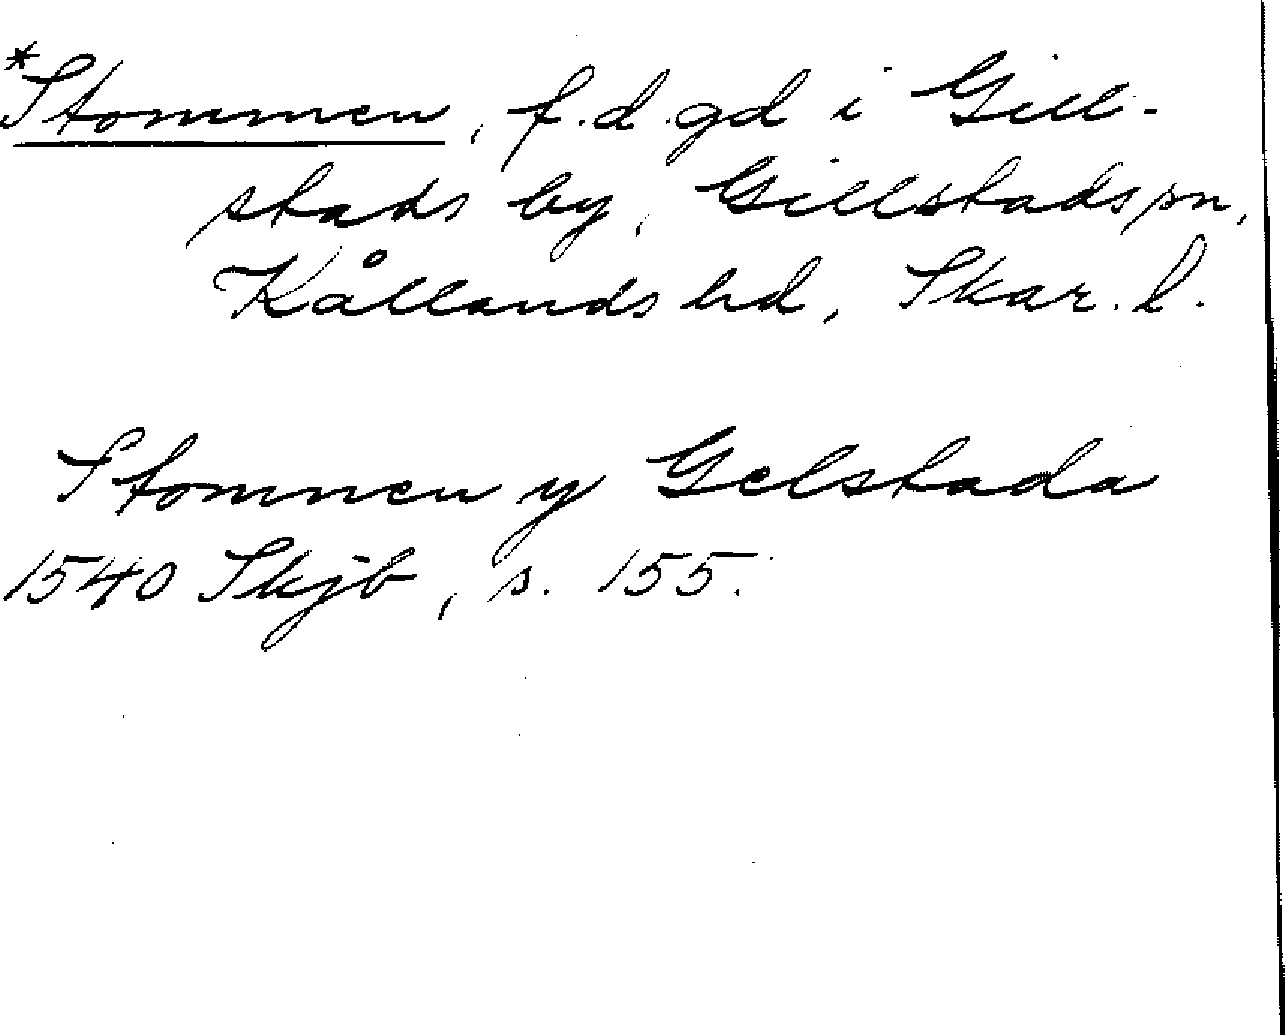 *Stommen, f.d. gd i Gill-
stads by, Gillstads sn,
Kållands hd, Skar. l.
Stommen y Gelstada
1540 Skjb, s. 155.